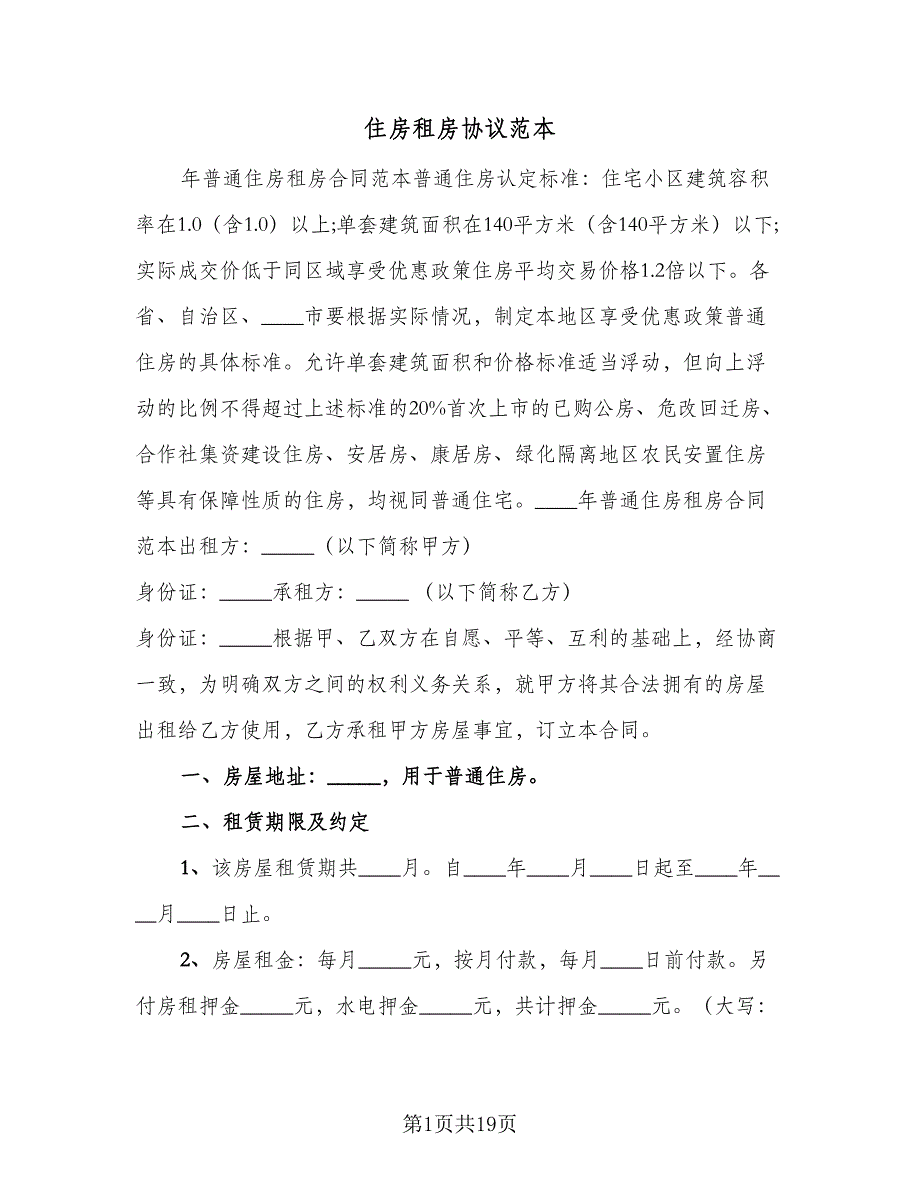 住房租房协议范本
年普通住房租房合同范本普通住房认定标准：住宅小区建筑容积
率在1.0（含1.0）以上;单套建筑面积在140平方米（含140平方米）以下;
实际成交价低于同区域享受优惠政策住房平均交易价格1.2倍以下。各
省、自治区、____市要根据实际情况，制定本地区享受优惠政策普通
住房的具体标准。允许单套建筑面积和价格标准适当浮动，但向上浮
动的比例不得超过上述标准的20%首次上市的已购公房、危改回迁房、
合作社集资建设住房、安居房、康居房、绿化隔离地区农民安置住房
等具有保障性质的住房，均视同普通住宅。____年普通住房租房合同
范本出租方：_____（以下简称甲方）
身份证：_____承租方：_____ （以下简称乙方）
身份证：_____根据甲、乙双方在自愿、平等、互利的基础上，经协商
一致，为明确双方之间的权利义务关系，就甲方将其合法拥有的房屋
出租给乙方使用，乙方承租甲方房屋事宜，订立本合同。
一、房屋地址：_____，用于普通住房。
二、租赁期限及约定
1、该房屋租赁期共____月。自____年____月____日起至____年__
__月____日止。
2、房屋租金：每月_____元，按月付款，每月____日前付款。另
付房租押金_____元，水电押金_____元，共计押金_____元。（大写：
第1页共19页